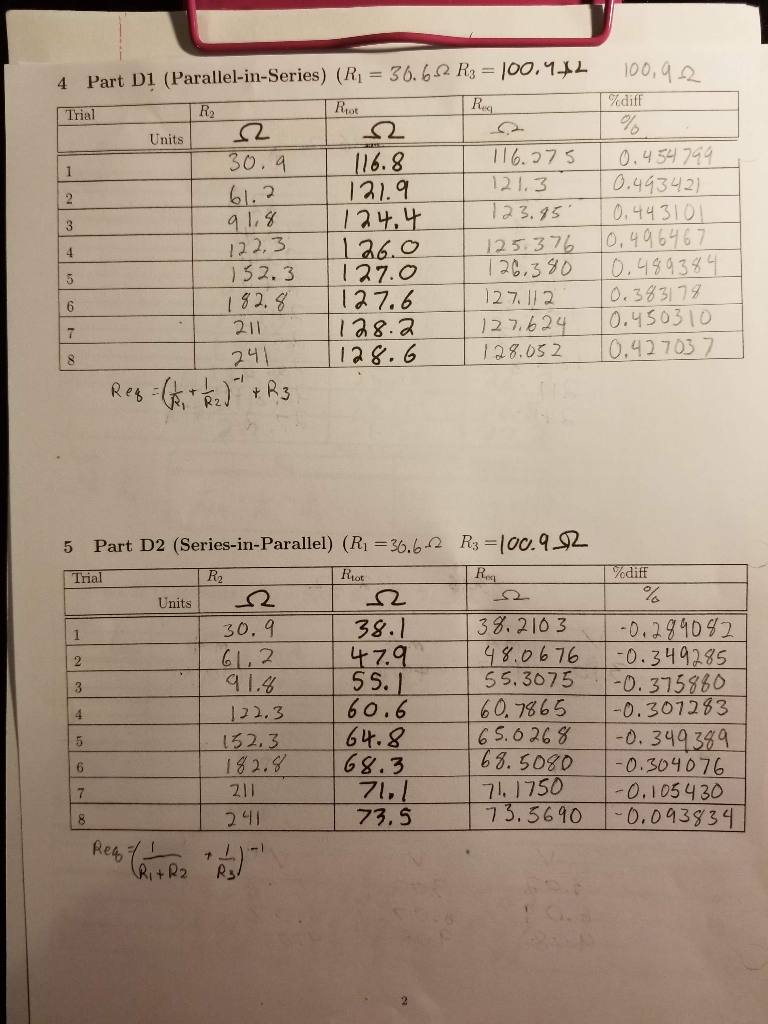 4 Part D1 (Parallel-in-Series) (R₁ = 30.6Ω R₃ = 100.9 Ω 100.9 Ω
Trial R₂ Rtot Req %diff
Units Ω Ω Ω %
1 30.9 116.8 116.275 0.454799
2 61.2 121.9 121.3 0.493421
3 91.8 124.4 123.85 0.443101
4 122.3 126.0 125.376 0.496467
5 152.3 127.0 126.380 0.489384
6 182.8 127.6 127.112 0.383178
7 211 128.2 127.624 0.450310
8 241 128.6 128.052 0.427037
Req = (1/R₁ + 1/R₂)⁻¹ + R₃
5 Part D2 (Series-in-Parallel) (R₁ = 30.6Ω R₃ = 100.9 Ω
Trial R₂ Rtot Req %diff
Units Ω Ω Ω %
1 30.9 38.1 38.2103 -0.289082
2 61.2 47.9 48.0676 -0.349285
3 91.8 55.1 55.3075 -0.375880
4 122.3 60.6 60.7865 -0.307283
5 152.3 64.8 65.0268 -0.349389
6 182.8 68.3 68.5080 -0.304076
7 211 71.1 71.1750 -0.105430
8 241 73.5 73.5690 -0.093834
Req = (1/(R₁+R₂) + 1/R₃)⁻¹
2